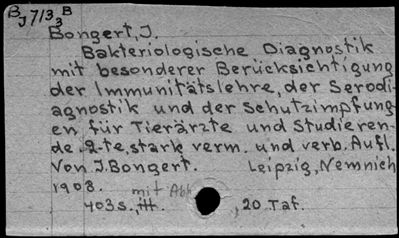 B J713 3 B
Bongert, J.
Bakteriologische Diagnostik
mit besonderer Berücksichtigung
der Immunitätslehre, der Serodi-
agnostik und der Schutzimpfung-
en, für Tierärzte und Studieren-
de. 2-te, stark verm. und verb. Aufl.
Von J. Bongert. Leipzig, Nemnich
1908. mit Abb
403 s., ill. , 20 Taf.